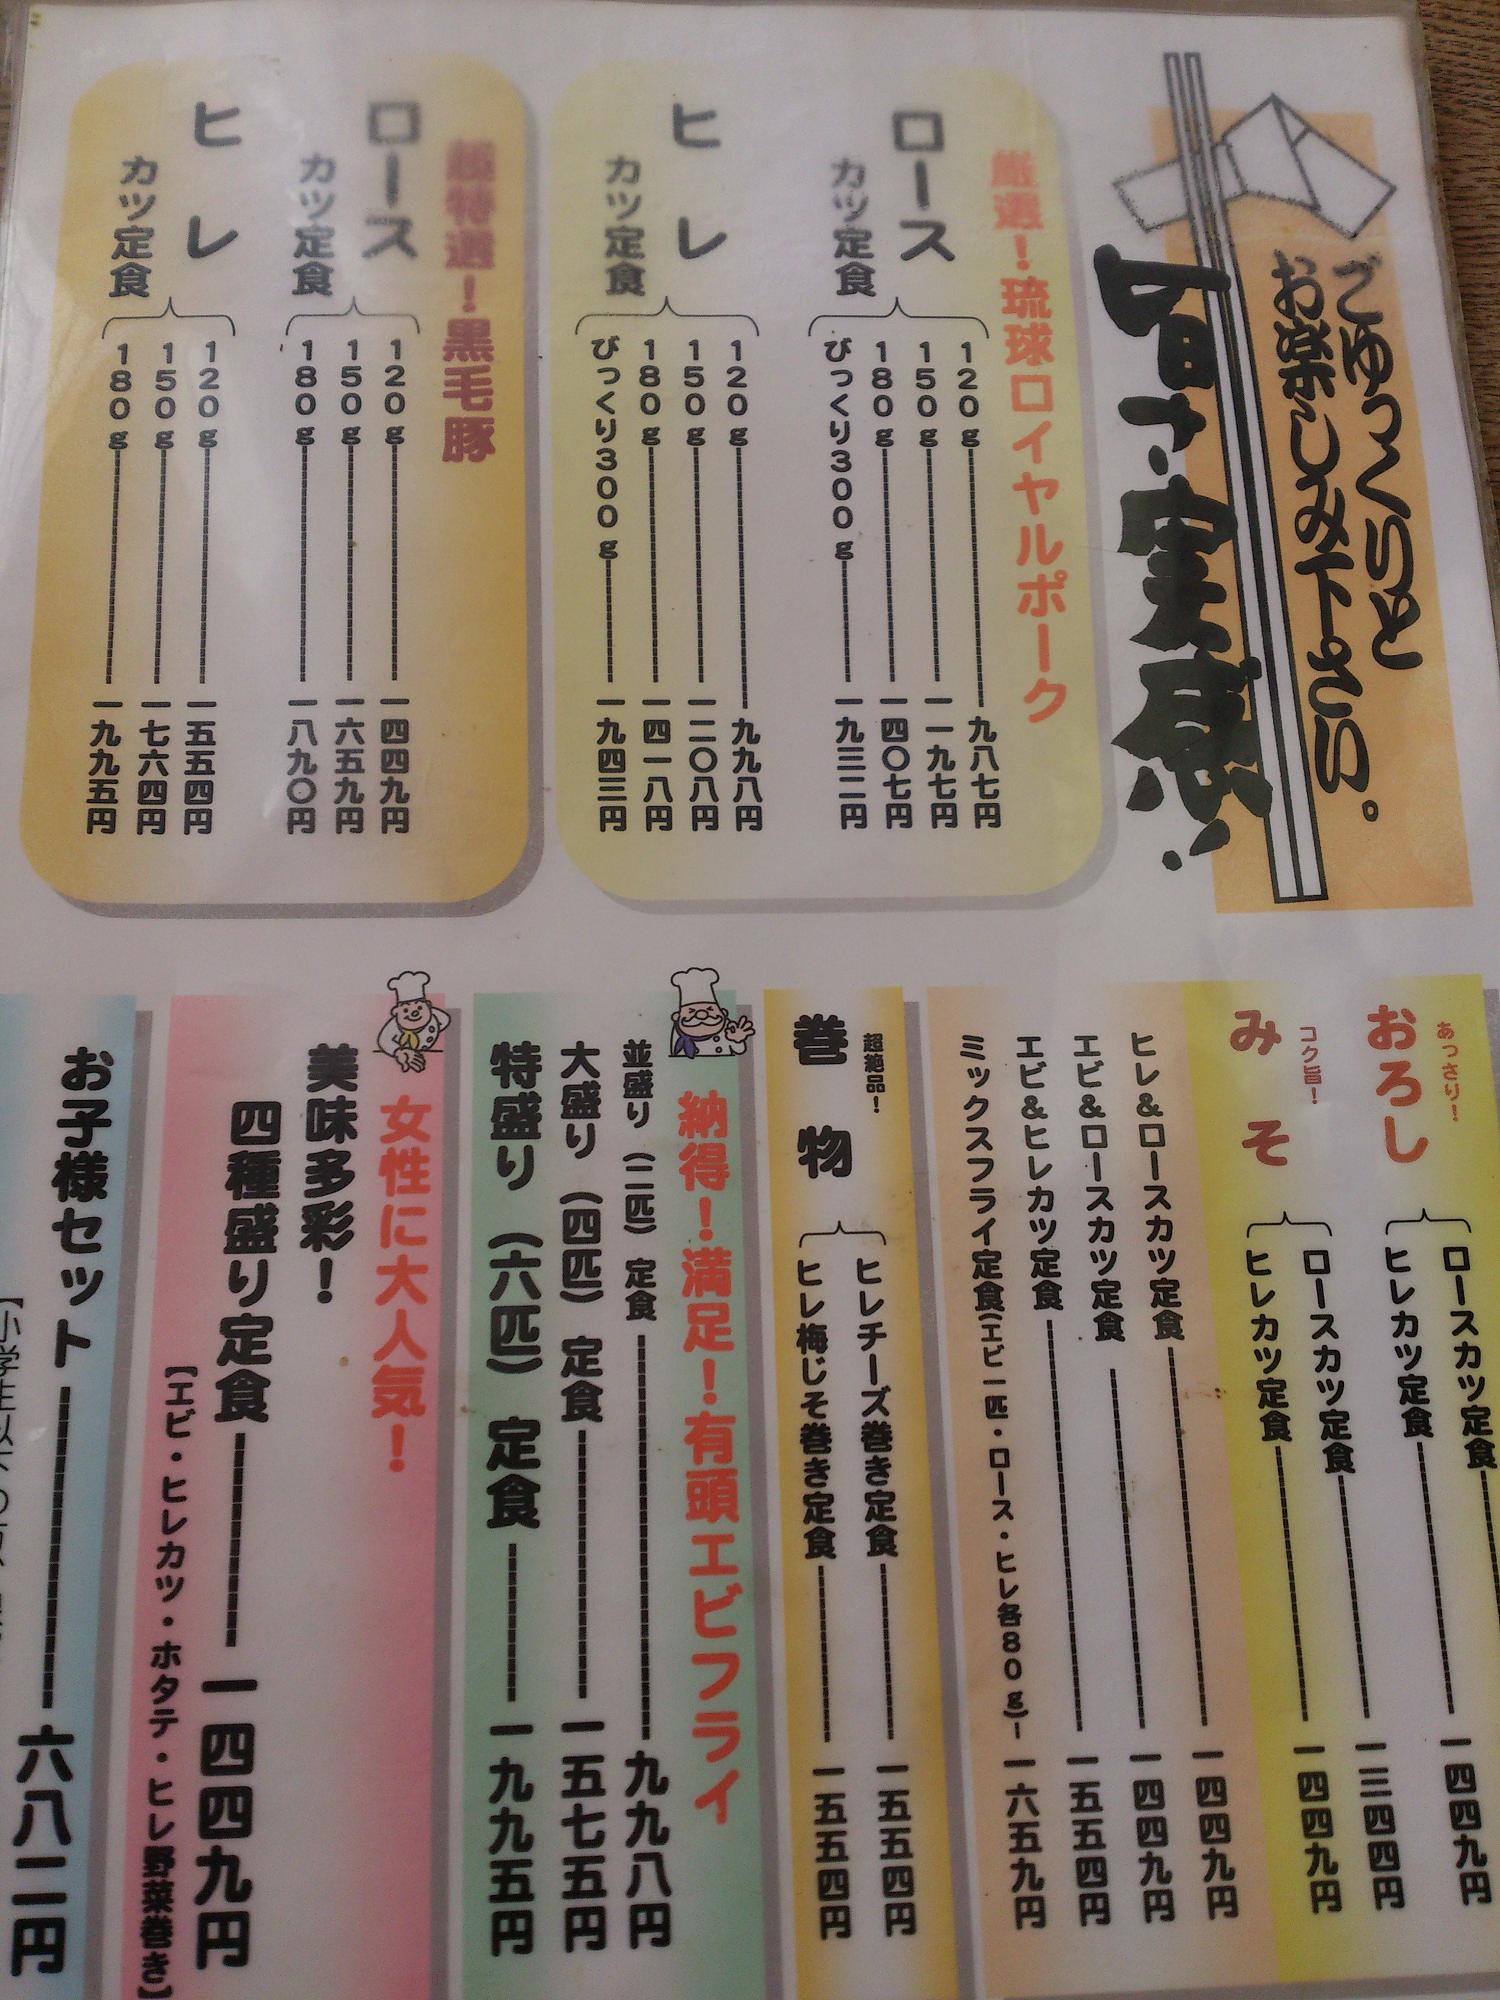 ごゆっくりと
お楽しみ下さい。
旨さ実感!
厳選!琉球ロイヤルポーク
ロース
カツ定食
120g 九八七円
150g 一一九七円
180g 一四〇七円
びっくり300g 一九三二円
ヒレ
カツ定食
120g 九九八円
150g 一二〇八円
180g 一四一八円
びっくり300g 一九四三円
超特選!黒毛豚
ロース
カツ定食
120g 一四四九円
150g 一六五九円
180g 一八九〇円
ヒレ
カツ定食
120g 一五五四円
150g 一七六四円
180g 一九九五円
あっさり!
おろし
ロースカツ定食 一四四九円
ヒレカツ定食 一三四四円
コク旨!
みそ
ロースカツ定食
ヒレカツ定食 一四四九円
ヒレ&ロースカツ定食 一四四九円
エビ&ロースカツ定食 一四四九円
エビ&ヒレカツ定食 一五五四円
ミックスフライ定食(エビ一匹・ロース・ヒレ各80g) 一六五九円
超絶品!
巻物
ヒレチーズ巻き定食 一五五四円
ヒレ梅じそ巻き定食 一五五四円
納得!満足!有頭エビフライ
並盛り(二匹)定食 九九八円
大盛り(四匹)定食 一五七五円
特盛り(六匹)定食 一九九五円
女性に大人気!
美味多彩!
四種盛り定食 一四四九円
【エビ・ヒレカツ・ホタテ・ヒレ野菜巻き】
お子様セット 六八二円
【小学生以下の方